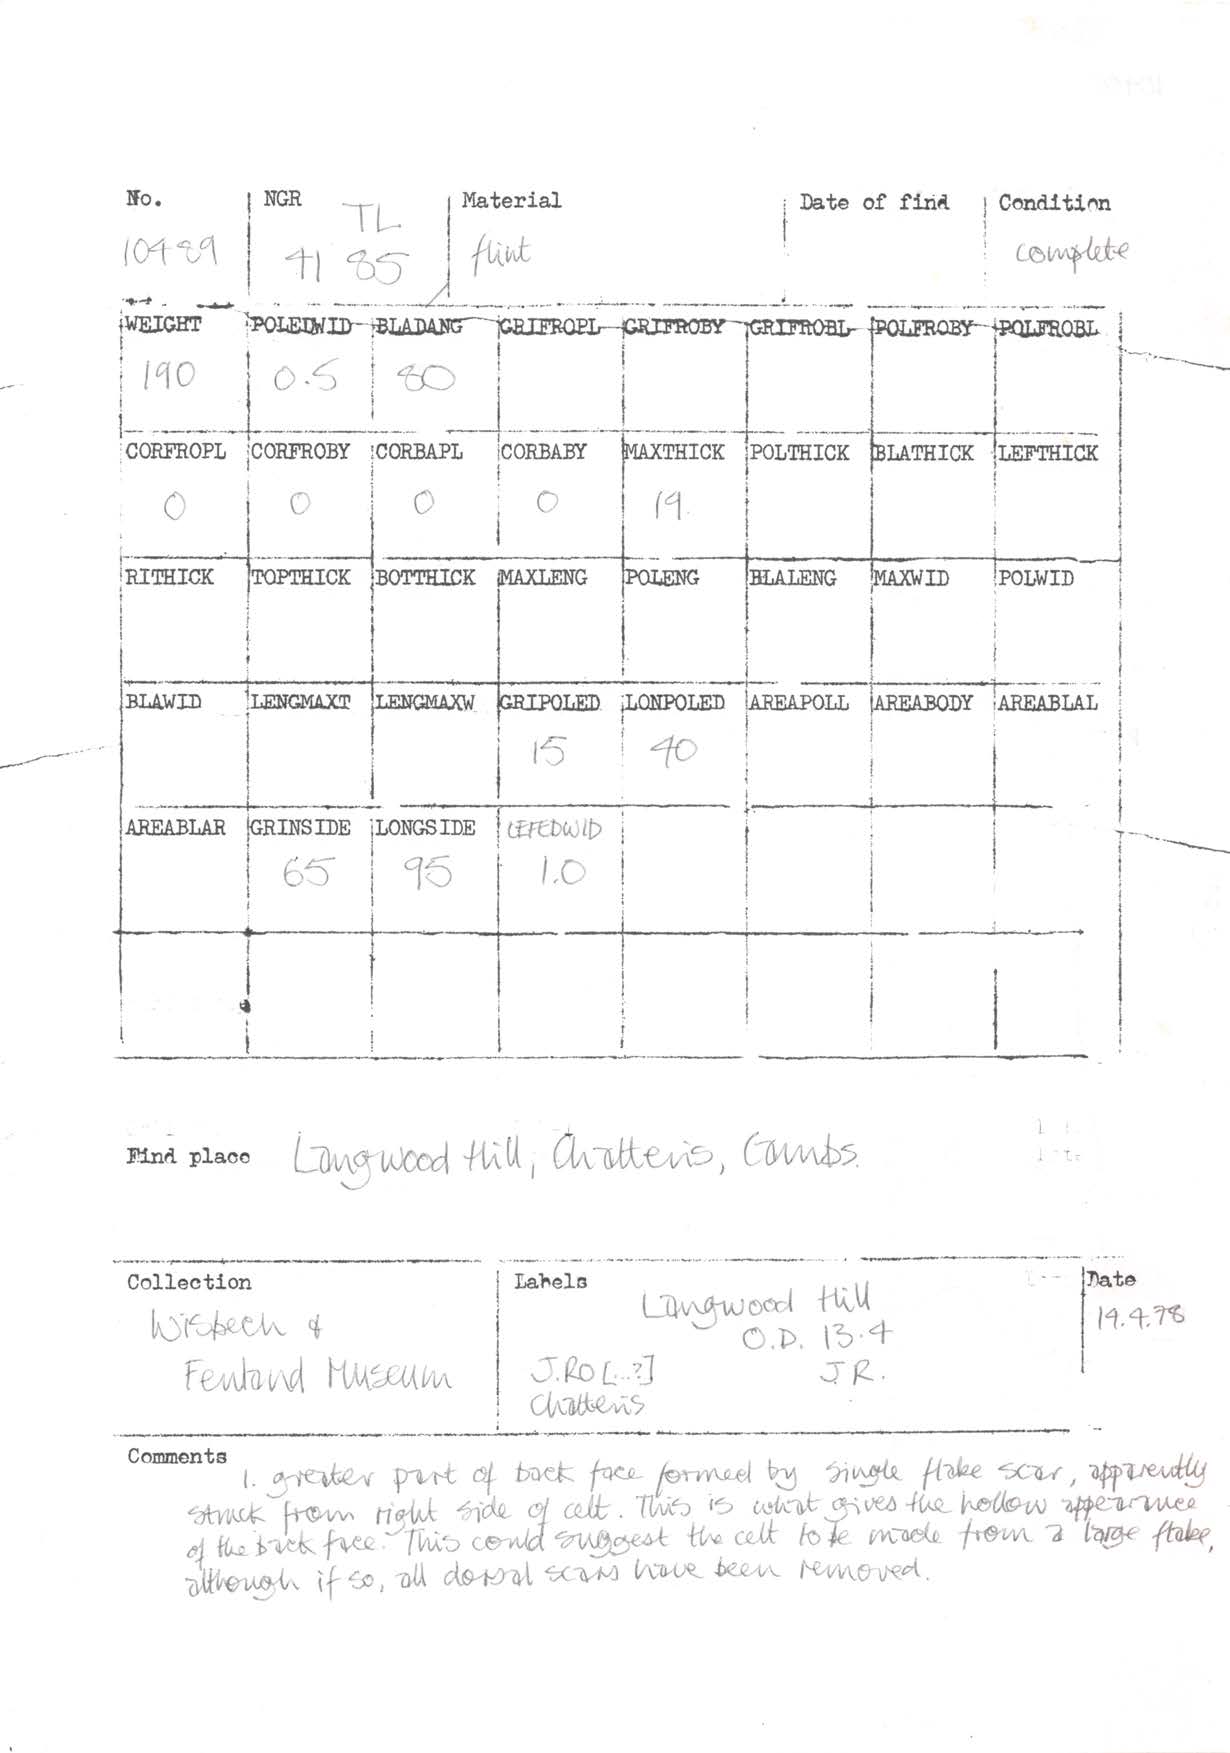 No. NGR Material Date of find Condition
TL
10489 41 85 flint complete
WEIGHT POLEDWID BLADANG GRIFROPL GRIFROBY GRIFROBL POLFROBY POLFROBL
190 0.5 80
CORFROPL CORFROBY CORBAPL CORBABY MAXTHICK POLTHICK BLATHICK LEFTHICK
0 0 0 0 19
RITHICK TOPTHICK BOTTHICK MAXLENG POLENG BLALENG MAXWID POLWID
BLAWID LENGMAXT LENGMAXW GRIPOLED LONPOLED AREAPOLL AREABODY AREABLAL
15 40
AREABLAR GRINSIDE LONGSIDE LEFEDWID
65 95 1.0
Find place Langwood Hill, Chatteris, Cambs.
Collection Labels Date
Wisbech &
Fenland Museum
Langwood Hill
O.D. 13.4
J.RO[...?] J.R.
Chatteris
19.4.78
Comments
1. greater part of back face formed by single flake scar, apparently
struck from right side of celt. This is what gives the hollow appearance
of the back face. This could suggest the celt to be made from a large flake,
although if so, all dorsal scars have been removed.